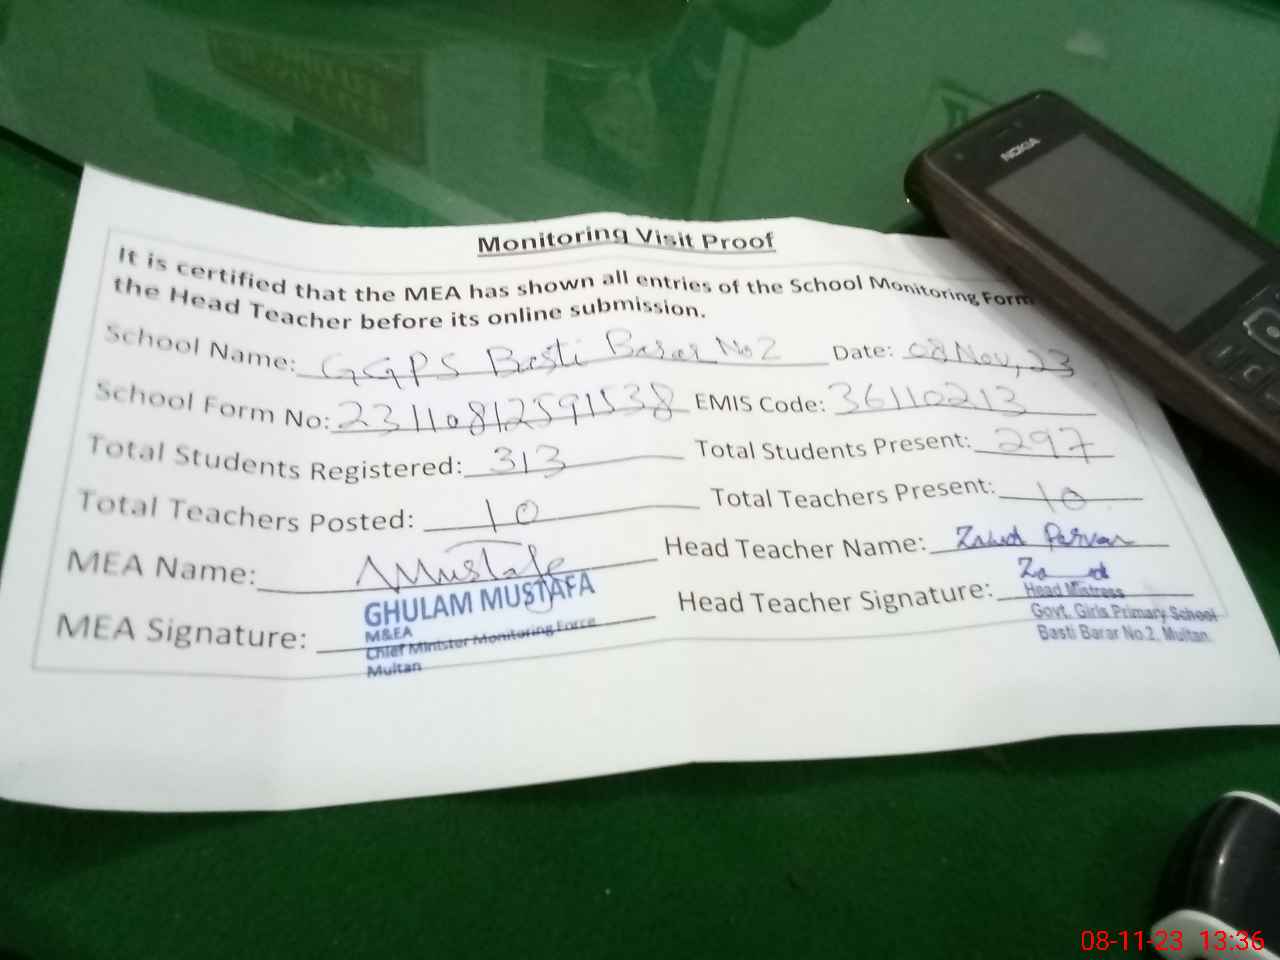 NOKIA
Monitoring Visit Proof
It is certified that the MEA has shown all entries of the School Monitoring Form
the Head Teacher before its online submission.
School Name: GGPS Basti Barar No 2 Date: 08 Nov, 23
School Form No: 23110812591538 EMIS Code: 36110213
Total Students Registered: 313 Total Students Present: 297
Total Teachers Posted: 10 Total Teachers Present: 10
MEA Name: Mustafa Head Teacher Name: Zahid Parvan
MEA Signature: Head Teacher Signature:
GHULAM MUSTAFA
M&EA
Chief Minister Monitoring Force
Multan
Head Mistress
Govt. Girls Primary School
Basti Barar No.2, Multan.
08-11-23 13:36